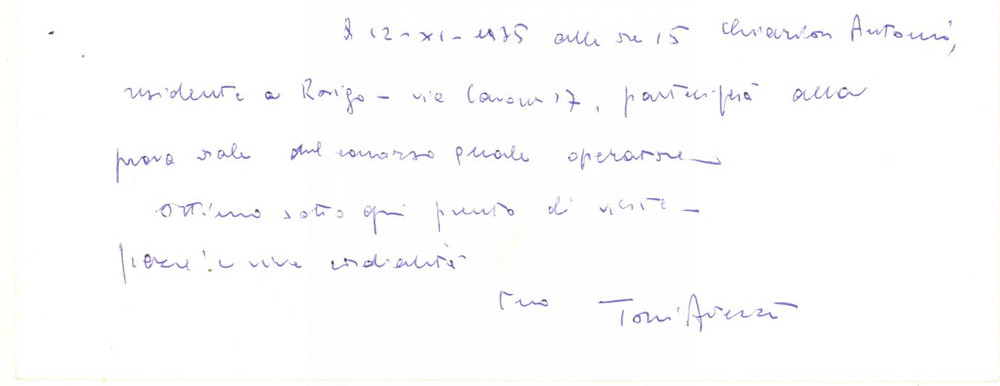 Il 12-XI-1975 alle ore 15 Chiarion Antonio,
residente a Rovigo - via Cavour 17, parteciperà alla
prova orale del concorso quale operatore -
Ottimo sotto ogni punto di vista -
e viva cordialità
tuo Toni